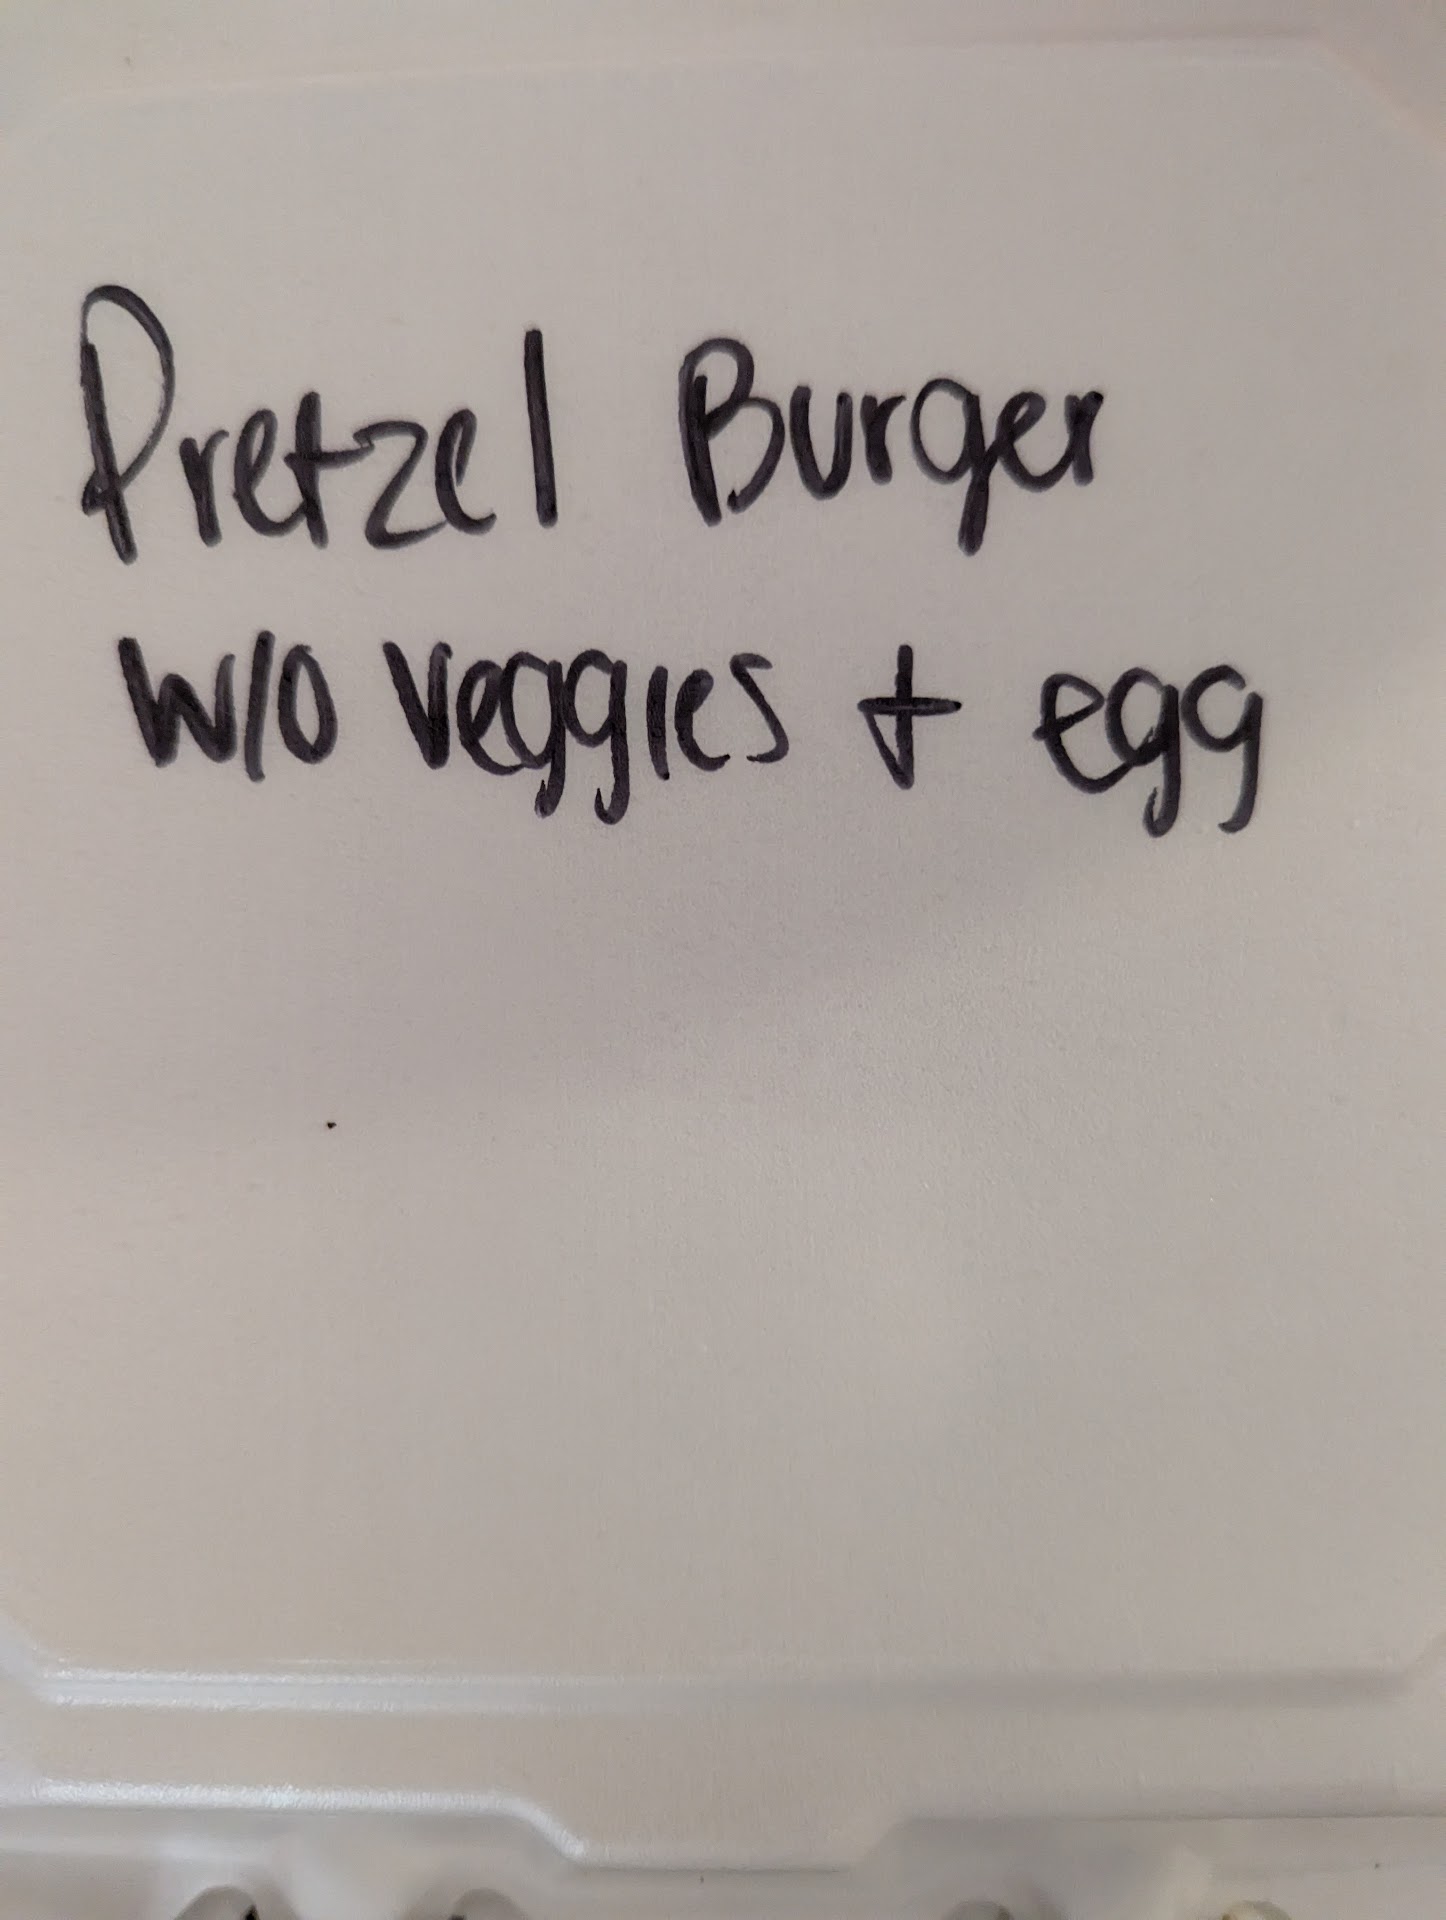 Pretzel Burger
w/o veggies + egg